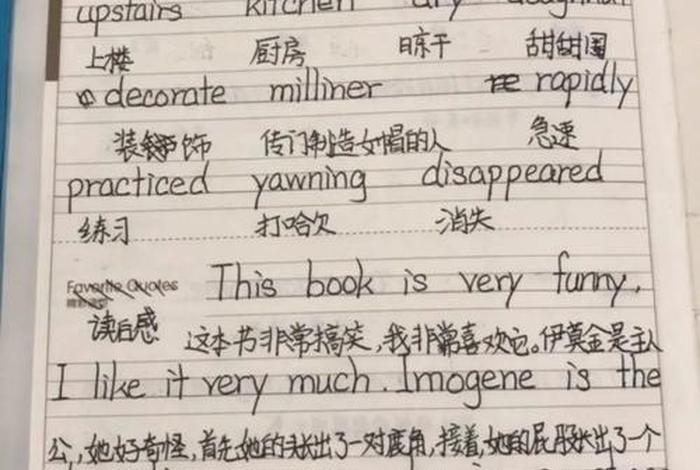 upstairs kitchen dry doughnut
上楼 厨房 晾干 甜甜圈
decorate milliner rapidly
装饰 传门制造女帽的人 急速
practiced yawning disappeared
练习 打哈欠 消失
Favorite Quotes This book is very funny.
读后感 这本书非常搞笑,我非常喜欢它。伊莫金是主人
I like it very much. Imogene is the
公,她好奇怪,首先她的头长出了一对鹿角,接着,她的屁股长出了一个